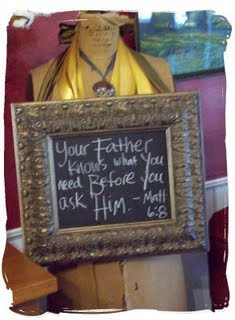 Your Father
knows what you
need Before you
ask Him. - Matt
6:8